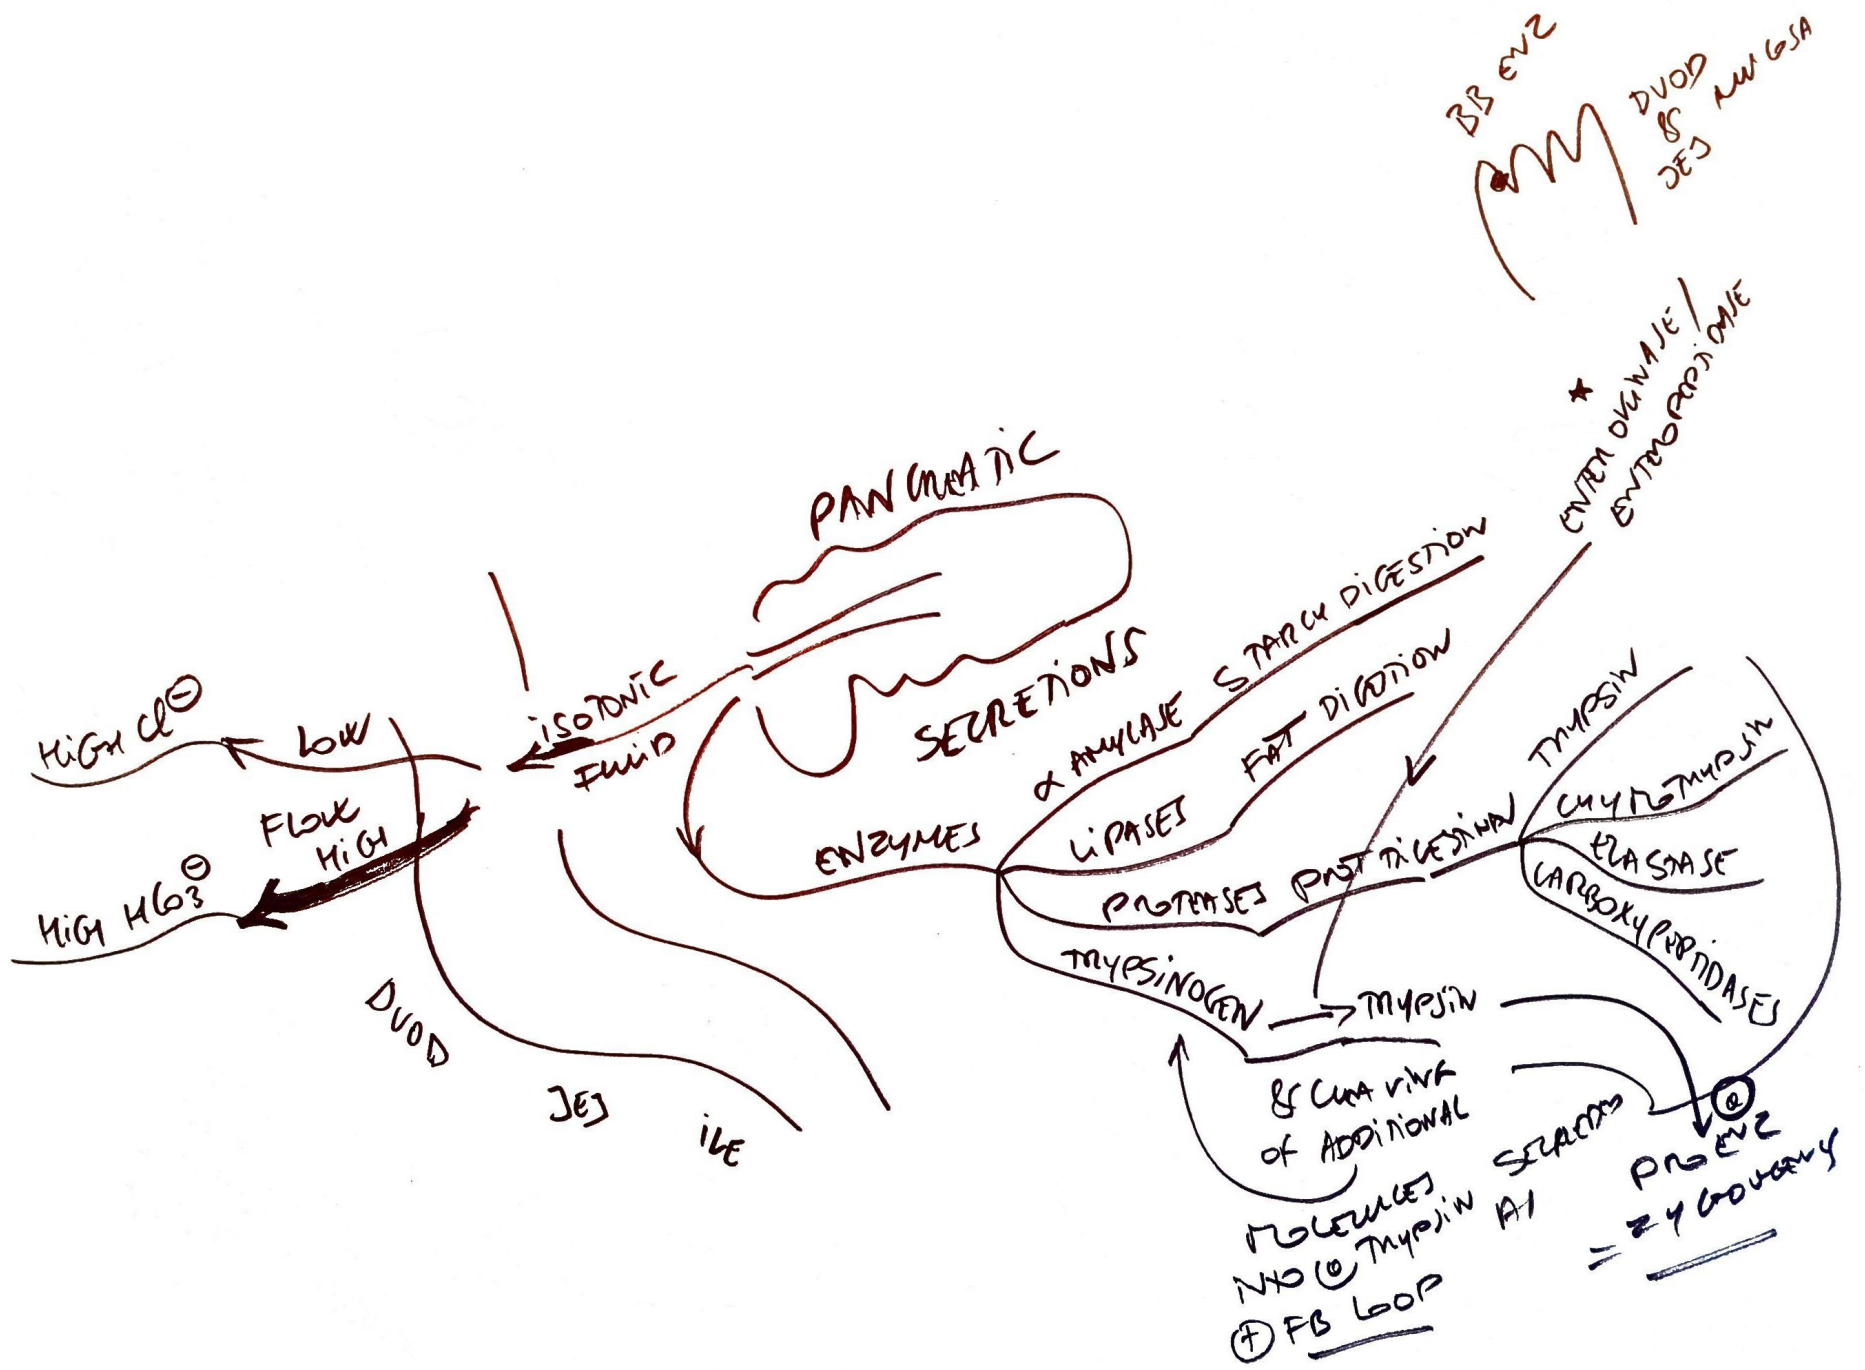 BB ENZ
DUOD
&
JEJ MUCOSA
★
ENTEROKINASE /
ENTEROPEPTIDASE
PANCREATIC
SECRETIONS
ISOTONIC
FLUID
HIGH Cl⊖
LOW
FLOW
HIGH
HIGH HCO3⊖
DUOD
JEJ
ILE
ENZYMES
α AMYLASE STARCH DIGESTION
LIPASES FAT DIGESTION
PROTEASES PROT DIGESTION
TRYPSIN
CHYMOTRYPSIN
ELASTASE
CARBOXYPEPTIDASES
TRYPSINOGEN → TRYPSIN
& CLEAVING
OF ADDITIONAL
MOLECULES
INTO TRYPSIN
⊕ FB LOOP
SECRETED
AS
PROENZ
= ZYMOGENS